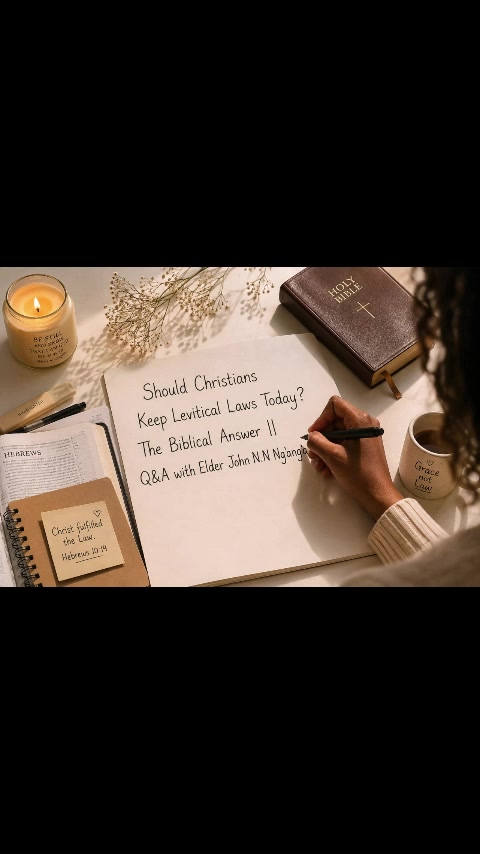 Should Christians
Keep Levitical Laws Today?
The Biblical Answer ||
Q&A with Elder John N.N Ng'ang'a
HOLY
BIBLE
BE STILL
HEBREWS
Christ fulfilled
the Law.
Hebrews 10:14
Grace
not
Law